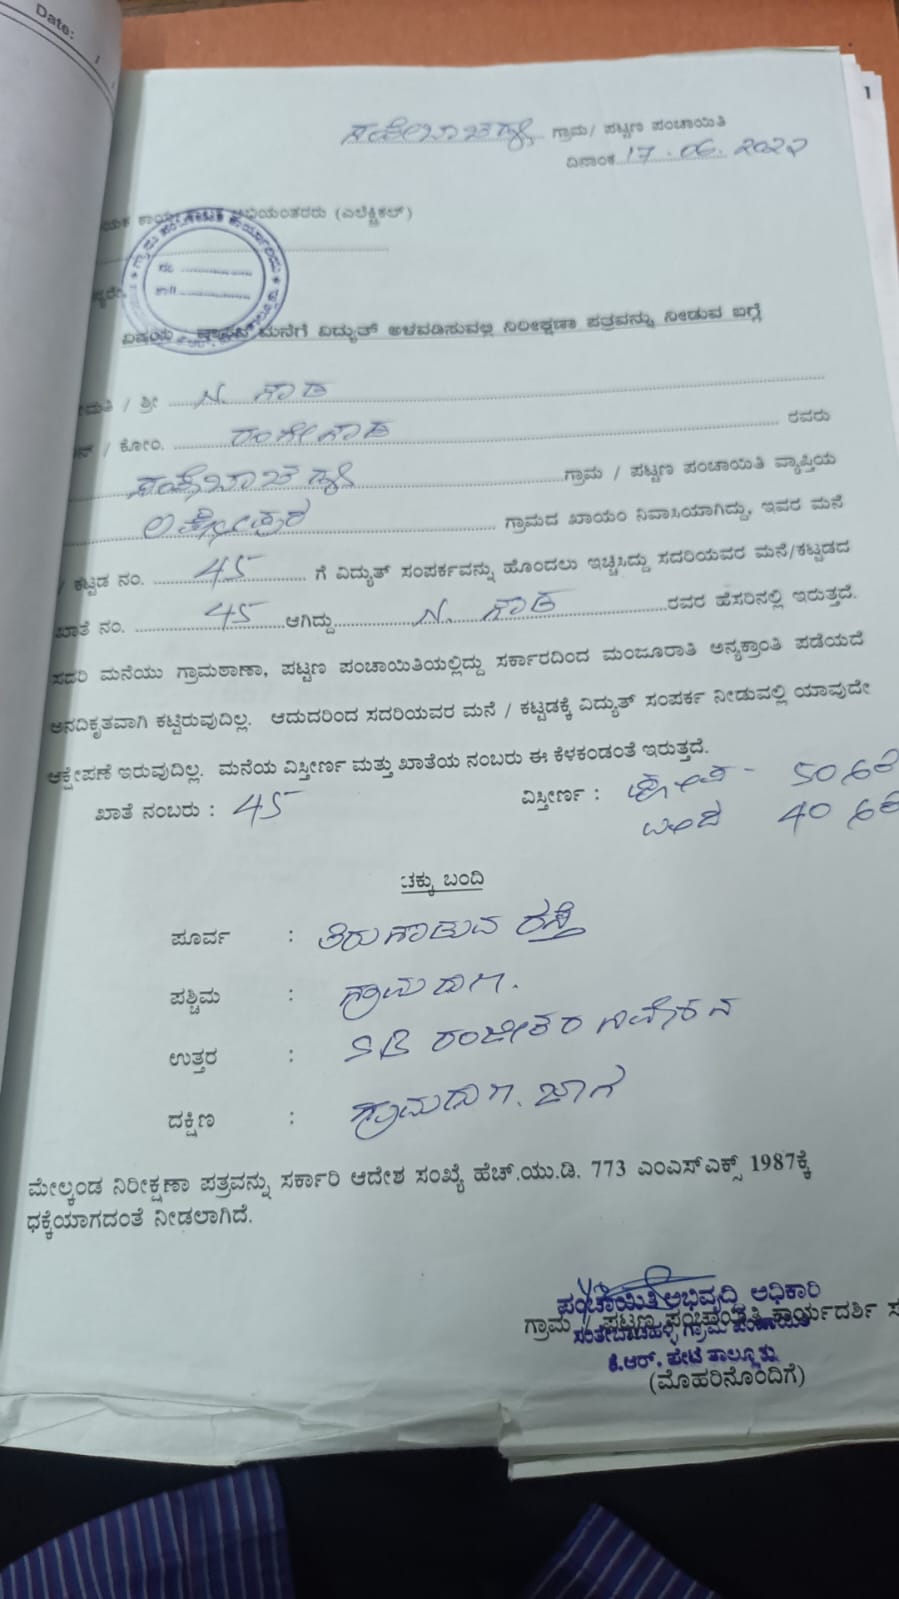 Date: / /
1
ಸಂತೇಬಾಚಹಳ್ಳಿ ಗ್ರಾಮ/ ಪಟ್ಟಣ ಪಂಚಾಯಿತಿ
ದಿನಾಂಕ 17.06.2022
ಕಾರ್ಯ ಅಭಿಯಂತರರು (ಎಲೆಕ್ಟ್ರಿಕಲ್)
ವಿಷಯ ಮನೆಗೆ ವಿದ್ಯುತ್ ಅಳವಡಿಸುವಲ್ಲಿ ನಿರೀಕ್ಷಣಾ ಪತ್ರವನ್ನು ನೀಡುವ ಬಗ್ಗೆ
/ ಶ್ರೀ N. ಗೌಡ
/ ಕೋಂ. ರಂಗೇಗೌಡ ರವರು
ಸಂತೇಬಾಚಹಳ್ಳಿ ಗ್ರಾಮ / ಪಟ್ಟಣ ಪಂಚಾಯಿತಿ ವ್ಯಾಪ್ತಿಯ
ಗ್ರಾಮದ ಖಾಯಂ ನಿವಾಸಿಯಾಗಿದ್ದು, ಇವರ ಮನೆ
/ ಕಟ್ಟಡ ನಂ. 45 ಗೆ ವಿದ್ಯುತ್ ಸಂಪರ್ಕವನ್ನು ಹೊಂದಲು ಇಚ್ಛಿಸಿದ್ದು ಸದರಿಯವರ ಮನೆ/ಕಟ್ಟಡದ
ಖಾತೆ ನಂ. 45 ಆಗಿದ್ದು N. ಗೌಡ ರವರ ಹೆಸರಿನಲ್ಲಿ ಇರುತ್ತದೆ.
ಸದರಿ ಮನೆಯು ಗ್ರಾಮಠಾಣಾ, ಪಟ್ಟಣ ಪಂಚಾಯಿತಿಯಲ್ಲಿದ್ದು ಸರ್ಕಾರದಿಂದ ಮಂಜೂರಾತಿ ಅನ್ಯಕ್ರಾಂತಿ ಪಡೆಯದೆ
ಅನದಿಕೃತವಾಗಿ ಕಟ್ಟಿರುವುದಿಲ್ಲ. ಆದುದರಿಂದ ಸದರಿಯವರ ಮನೆ / ಕಟ್ಟಡಕ್ಕೆ ವಿದ್ಯುತ್ ಸಂಪರ್ಕ ನೀಡುವಲ್ಲಿ ಯಾವುದೇ
ಆಕ್ಷೇಪಣೆ ಇರುವುದಿಲ್ಲ. ಮನೆಯ ವಿಸ್ತೀರ್ಣ ಮತ್ತು ಖಾತೆಯ ನಂಬರು ಈ ಕೆಳಕಂಡಂತೆ ಇರುತ್ತದೆ.
ಖಾತೆ ನಂಬರು : 45 ವಿಸ್ತೀರ್ಣ : 50
40
ಚಕ್ಕು ಬಂದಿ
ಪೂರ್ವ : ತಿರುಗಾಡುವ ರಸ್ತೆ
ಪಶ್ಚಿಮ :
ಉತ್ತರ : SB ನಿವೇಶನ
ದಕ್ಷಿಣ : ಜಾಗ
ಮೇಲ್ಕಂಡ ನಿರೀಕ್ಷಣಾ ಪತ್ರವನ್ನು ಸರ್ಕಾರಿ ಆದೇಶ ಸಂಖ್ಯೆ ಹೆಚ್.ಯು.ಡಿ. 773 ಎಂಎಸ್ಎಕ್ಸ್ 1987ಕ್ಕೆ
ಧಕ್ಕೆಯಾಗದಂತೆ ನೀಡಲಾಗಿದೆ.
ಪಂಚಾಯಿತಿ ಅಭಿವೃದ್ಧಿ ಅಧಿಕಾರಿ
ಗ್ರಾಮ / ಪಟ್ಟಣ ಪಂಚಾಯಿತಿ ಕಾರ್ಯದರ್ಶಿ ಸ
ಸಂತೇಬಾಚಹಳ್ಳಿ ಗ್ರಾಮ ಪಂಚಾಯಿತಿ
ಕೆ.ಆರ್. ಪೇಟೆ ತಾಲ್ಲೂಕು
(ಮೊಹರಿನೊಂದಿಗೆ)